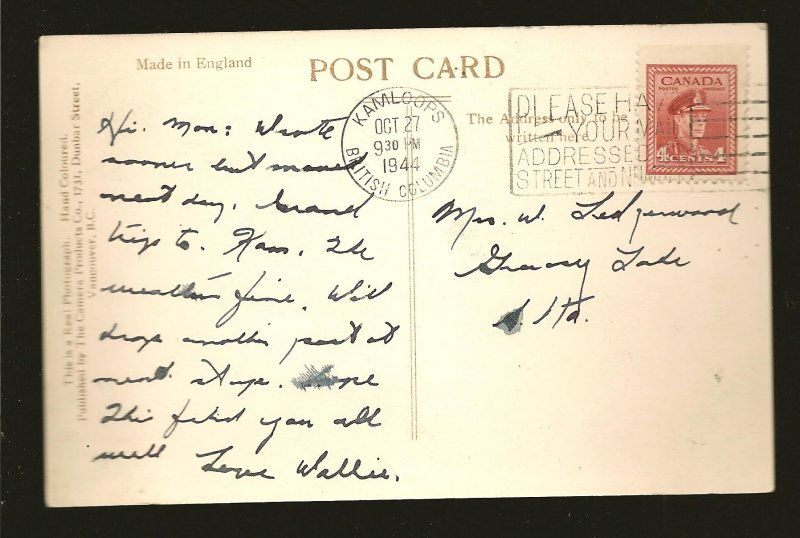 Made in England
POST CARD
This is a Real Photograph. Hand Coloured.
Published by The Camera Products Co., 1731, Dunbar Street,
Vancouver, B.C.
KAMLOOPS
OCT 27
9 30 PM
1944
BRITISH COLUMBIA
The Address only to be
written here
PLEASE HAVE
YOUR MAIL
ADDRESSED
STREET AND N
CANADA
POSTES POSTAGE
4 CENTS 4
Hi. Mom: Wrote
sooner but moved
next day. Grand
trip to Kam. The
weather fine. Will
drop another post at
next stop. Hope
this finds you all
well Love Wallie.
Mrs. W. Ledgerwood
Grassy Lake
Alta.